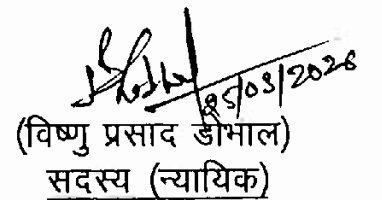 25/03/2026
(विष्णु प्रसाद डोभाल)
सदस्य (न्यायिक)